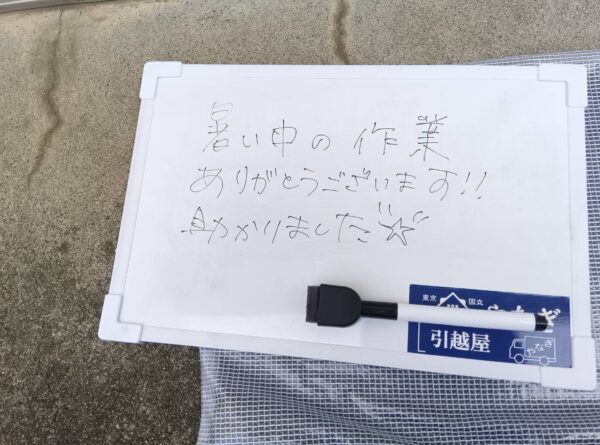 暑い中の作業
ありがとうございます!!
助かりました☆
東京 国立
引越屋
やなぎ